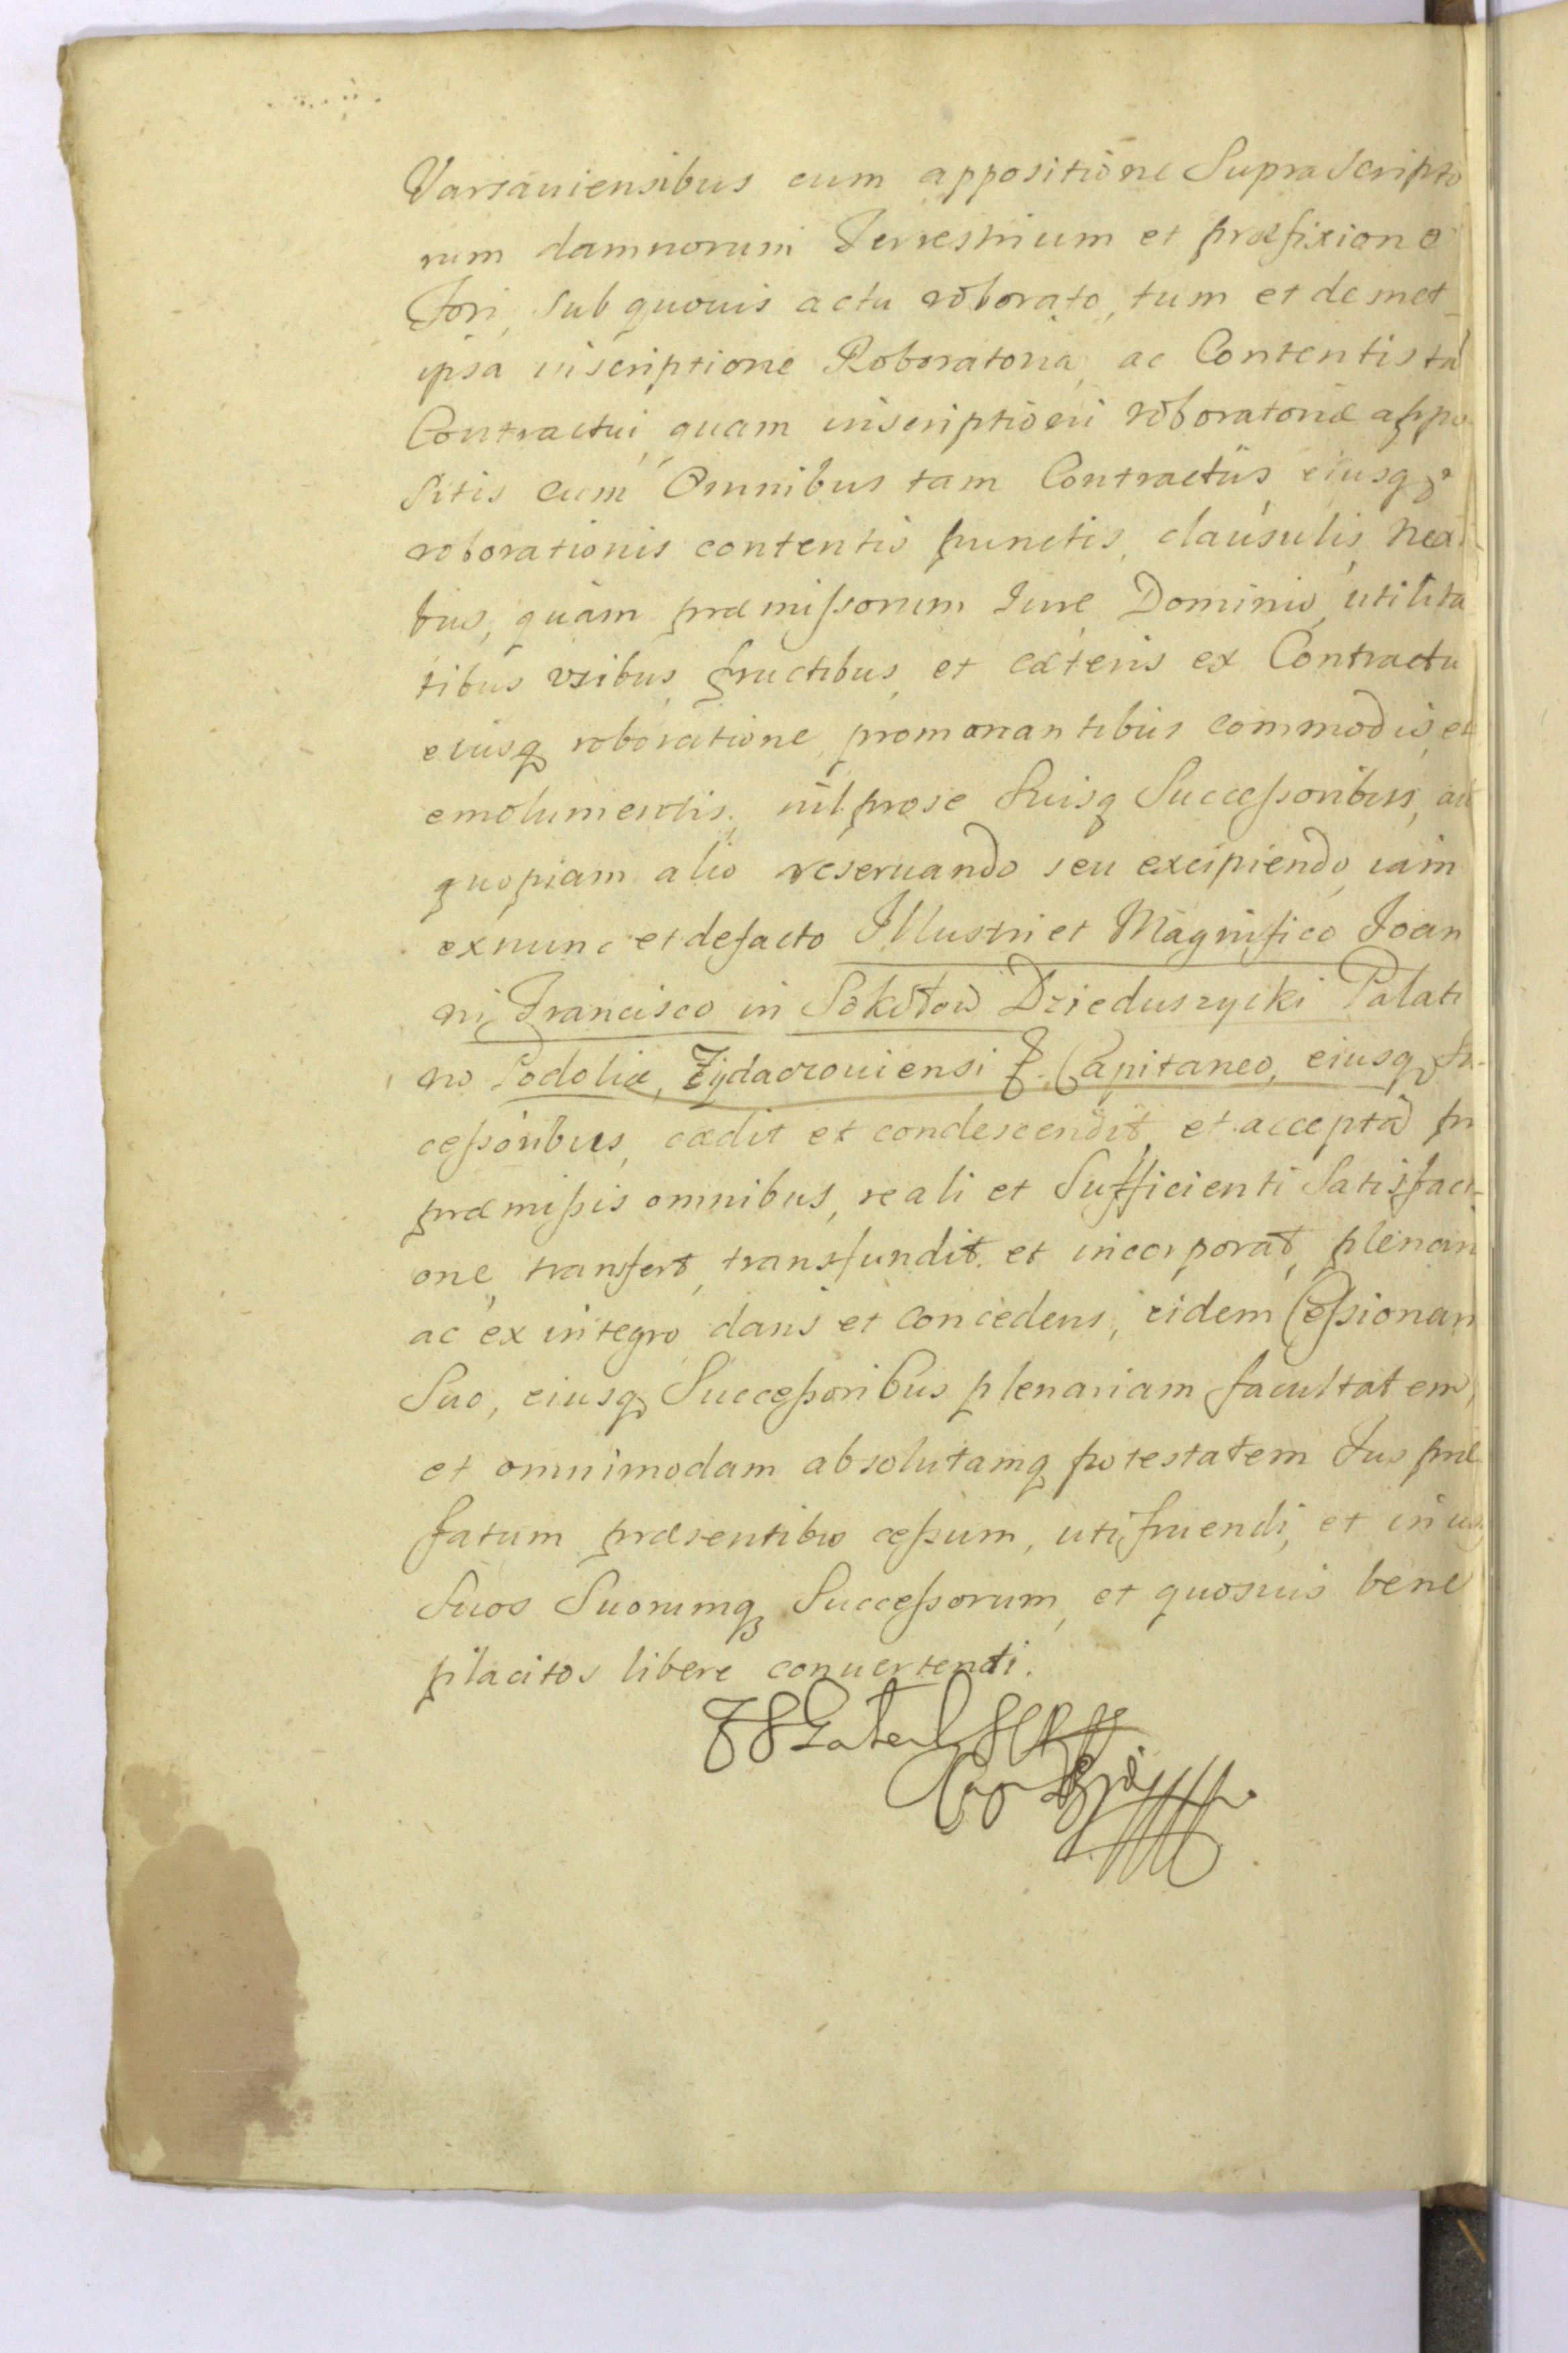 Varsauiensibus cum appositione Suprascripto
rum damnorum Terrestrium et præfixione
Fori, sub quouis actu roborato, tum et de met
ipsa inscriptione Roboratoria, ac Contentis ta
Contractui, quam inscriptioni roboratoriæ appo
sitis cum Omnibus tam Contractûs, eiusq3
roborationis contentis punctis, clausulis, nexi
bus, quàm præmissorum Iure Dominio, utilita
tibus vsibus, fructibus, et cæteris ex Contractu
eiusq roboratione, promanantibus commodis, et
emolumentis, nil prose Suisq Successoribus, au
quopiam alio reseruando seu excipiendo, iam
exnunc et defacto Illustri et Magnifico Ioan
ni Francisco in Sokołow Dzieduszycki Palati
no Podoliæ, Zydaczouiensi &. Capitaneo, eiusq Su
cessoribus, cædit et condescendit, et acceptâ pr
præmissis omnibus, reali et Sufficienti Satisfacti
one, transfert, transfundit et incorporat, plenari
ac ex integro dans et Concedens, eidem Cessionari
Suo, eiusq Successoribus plenariam facultatem,
et omnimodam absolutamq potestatem Ius præ
fatum præsentibus cessum, utifruendi, et in us
Suos Suorumq3 Successorum, et quosuis bene
placitos libere conuertendi.